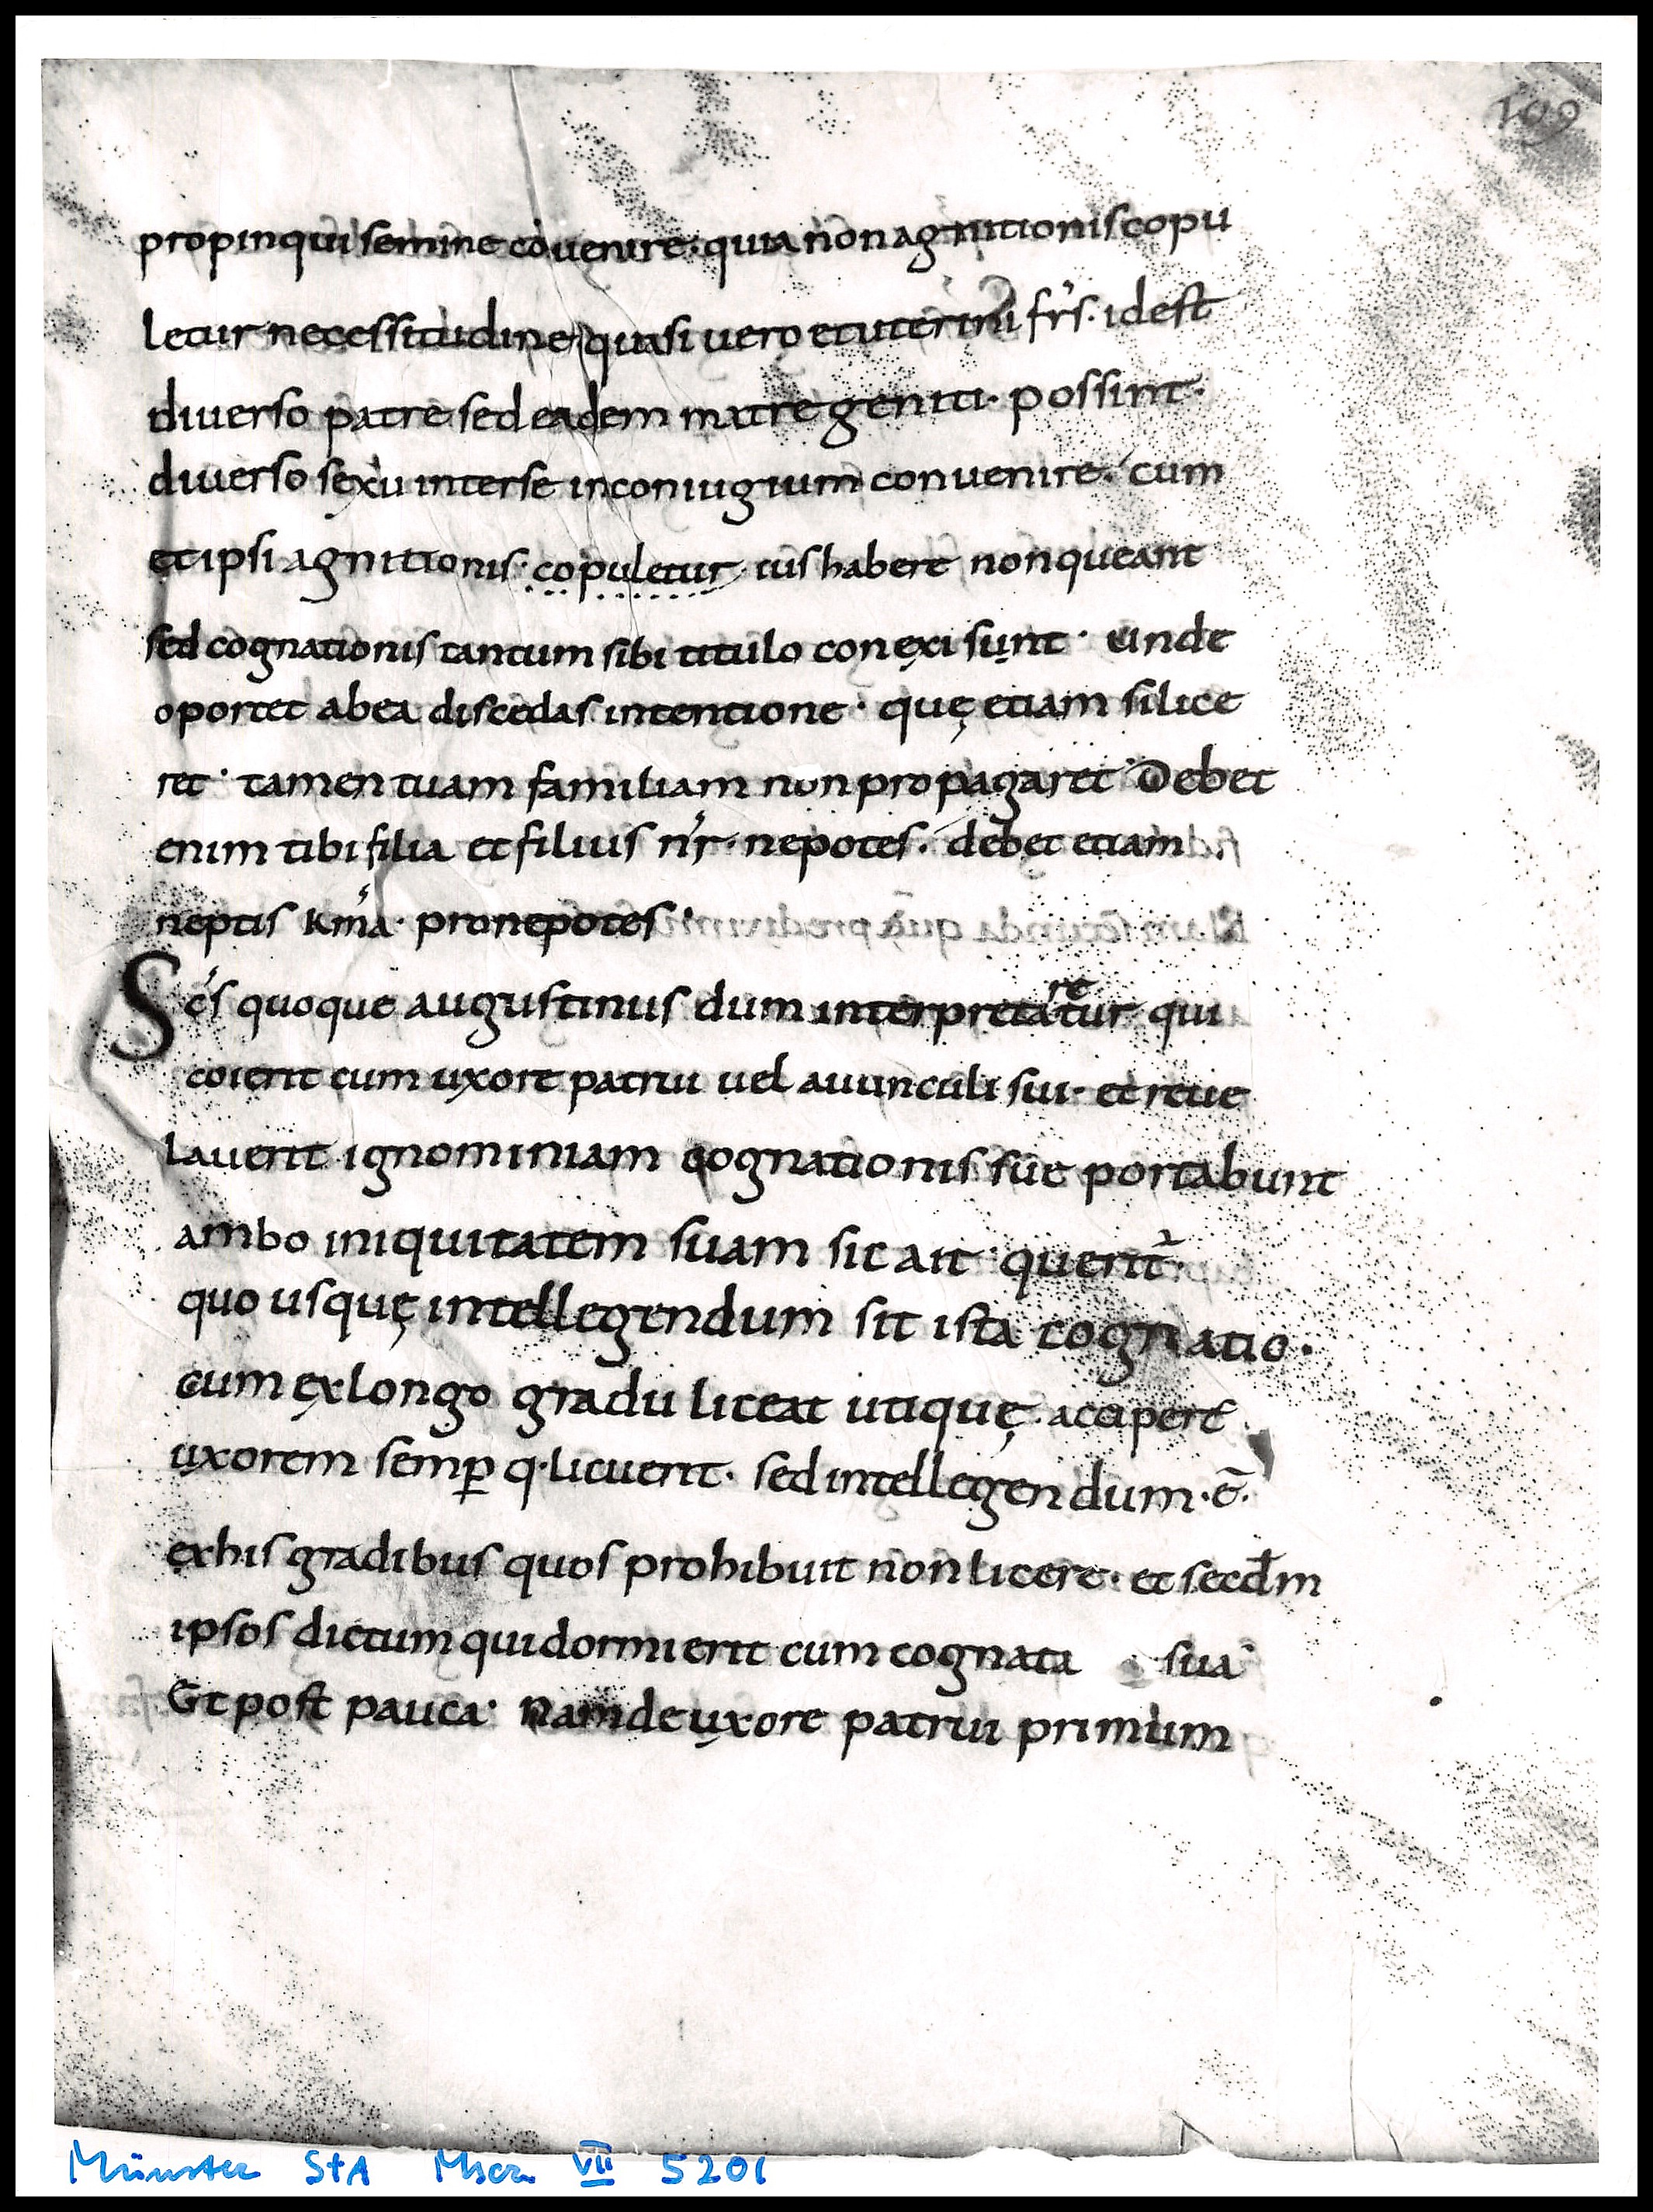 109
propinqui semine cóuenire; quia non agnitionis copu
letur necessitudine; quasi uero et uterini fr̄s. idest
diuerso patre sed eadem matre geniti. possint.
diuerso sexu inter se in coniugium conuenire. cum
et ipsi agnitionis. copuletur. ius habere non queant
sed cognationis tantum sibi titulo conexi sunt. unde
oportet ab ea discedas intentione. quę etiam si lice
ret. tamen tuam familiam non propagaret. Debet
enim tibi filia et filius nr̄. nepotes. debet etiam
neptis Km̄a. pronepotes.
Sc̄s quoque augustinus dum interpretaretur qui
coierit cum uxore patrui uel auunculi sui. et reue
lauerit ignominiam cognationis sue portabunt
ambo iniquitatem suam sic ait. querit̄.
quo usquę intellegendum sit ista cognatio.
cum ex longo gradu liceat utiquę accipere
uxorem semꝑ q. licuerit. sed intellegendum. ē.
ex his gradibus quos prohibuit non licere. et secđm
ipsos dictum qui dormierit cum cognata sua
Et post pauca. Nam de uxore patrui primum
Münster StA Mscr. VII 5201